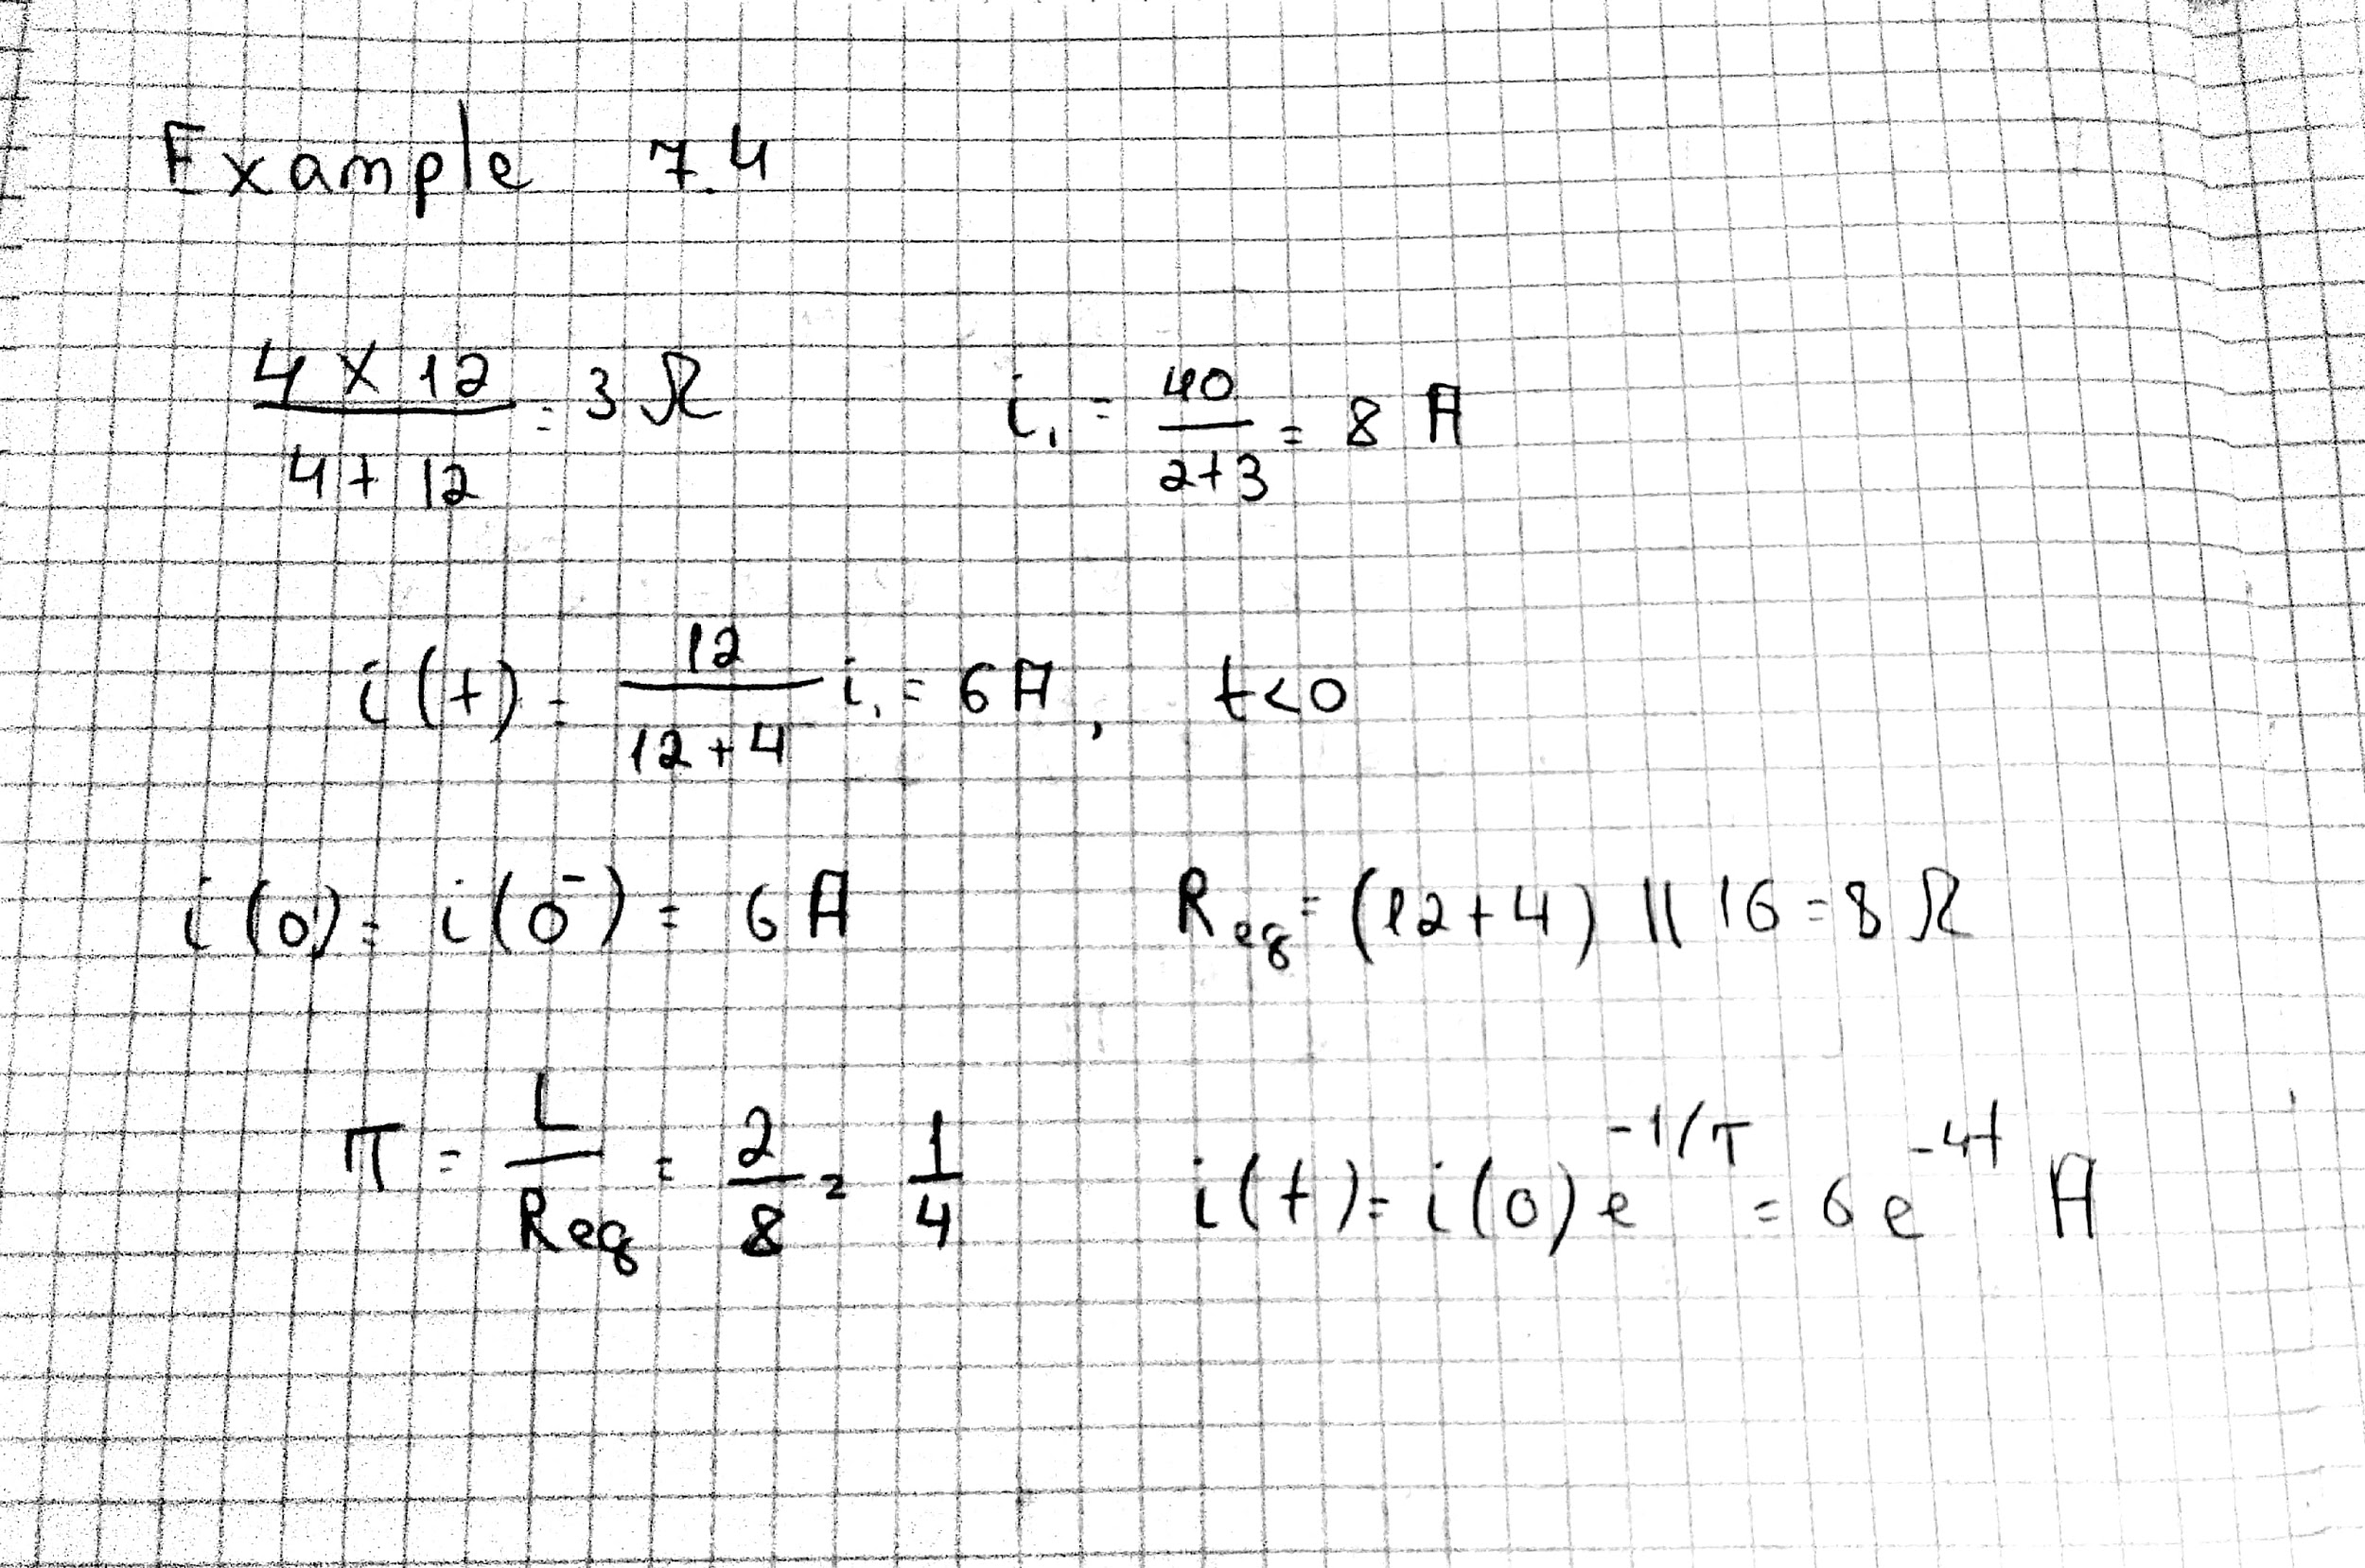 Example 7.4
4 × 12 / 4 + 12 = 3 Ω    i₁ = 40 / 2+3 = 8 A
i(t) = 12 / 12+4 i₁ = 6 A, t<0
i(0) = i(0⁻) = 6 A    Req = (12+4) || 16 = 8 Ω
τ = L / Req = 2 / 8 = 1 / 4    i(t) = i(0) e^-1/τ = 6 e^-4t A